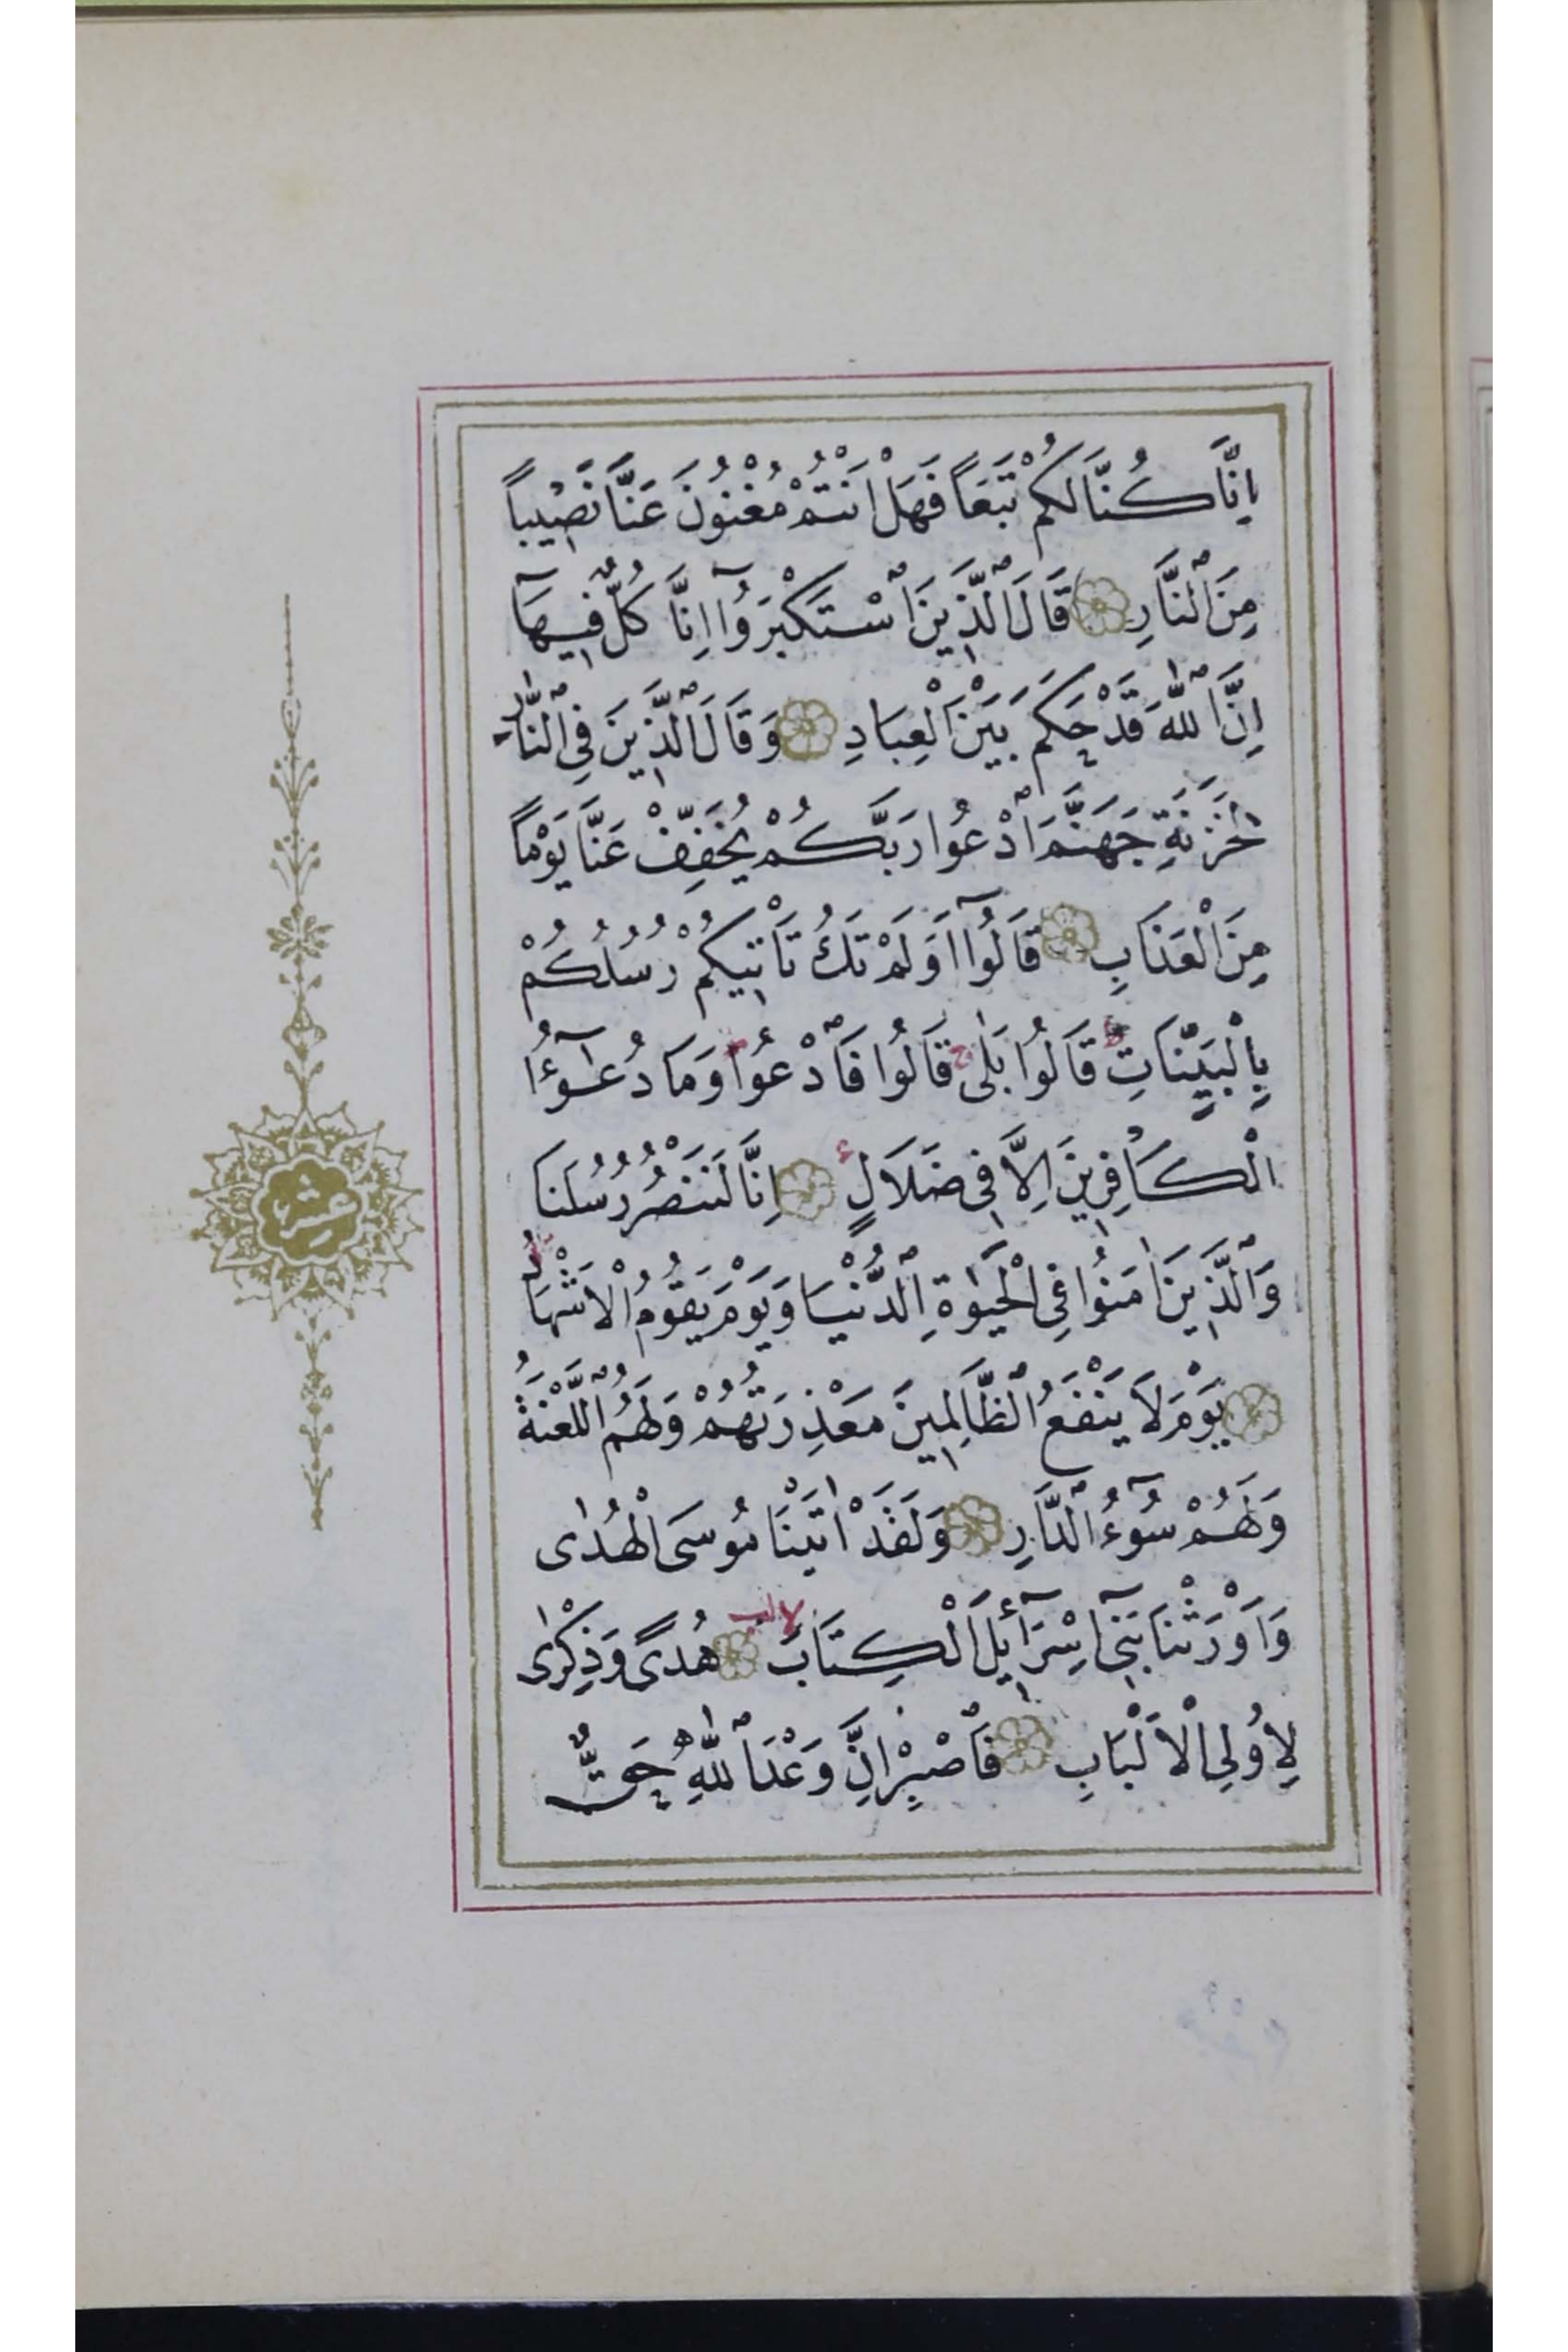 اِنَّا كُنَّا لَكُمْ تَبَعاً فَهَلْ اَنْتُمْ مُغْنُونَ عَنَّا نَصٖيباً
مِنَ ٱلنَّارِ ۝ قَالَ ٱلَّذٖينَ ٱسْتَكْبَرُوٓا اِنَّا كُلٌّ فٖيهَآ
اِنَّ ٱللّٰهَ قَدْ حَكَمَ بَيْنَ الْعِبَادِ ۝ وَقَالَ ٱلَّذٖينَ فِى ٱلنَّارِ
لِخَزَنَةِ جَهَنَّمَ ٱدْعُوا رَبَّكُمْ يُخَفِّفْ عَنَّا يَوْماً
مِنَ الْعَذَابِ ۝ قَالُوٓا اَوَلَمْ تَكُ تَاْتٖيكُمْ رُسُلُكُمْ
بِالْبَيِّنَاتِ ط قَالُوا بَلٰى ج قَالُوا فَٱدْعُوا ج وَمَا دُعٰٓؤُا
الْكَافِرٖينَ اِلَّا فٖى ضَلَالٍ ع ۝ اِنَّا لَنَنْصُرُ رُسُلَنَا
وَٱلَّذٖينَ اٰمَنُوا فِى الْحَيٰوةِ ٱلدُّنْيَا وَيَوْمَ يَقُومُ الْاَشْهَادُ لا
۝ يَوْمَ لَا يَنْفَعُ ٱلظَّالِمٖينَ مَعْذِرَتُهُمْ وَلَهُمُ ٱللَّعْنَةُ
وَلَهُمْ سُوٓءُ ٱلدَّارِ ۝ وَلَقَدْ اٰتَيْنَا مُوسَى الْهُدٰى
وَاَوْرَثْنَا بَنٖٓى اِسْرَآئٖلَ الْكِتَابَ لا لب ۝ هُدًى وَذِكْرٰى
لِاُولِى الْاَلْبَابِ ۝ فَٱصْبِرْ اِنَّ وَعْدَ ٱللّٰهِ حَقٌّ
عشر